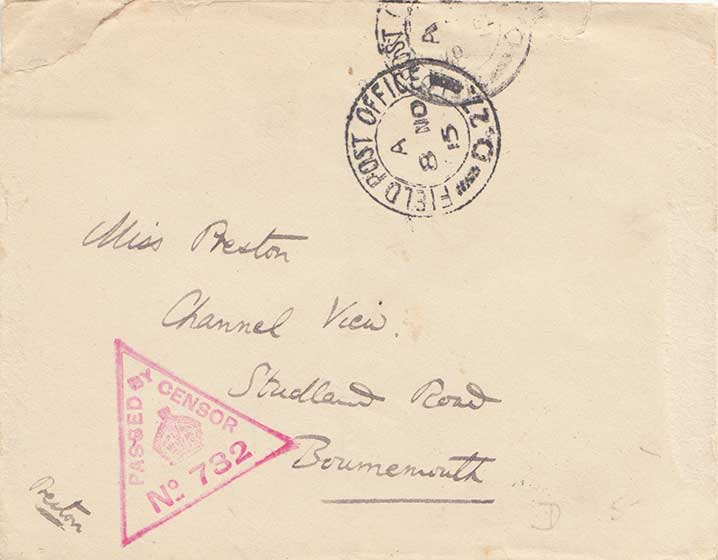 FIELD POST OFFICE
D. 22
A
8 NO
15
POST
A
Miss Preston
Channel View.
Studland Road
Bournemouth
PASSED BY CENSOR
No 732
Preston
D 5